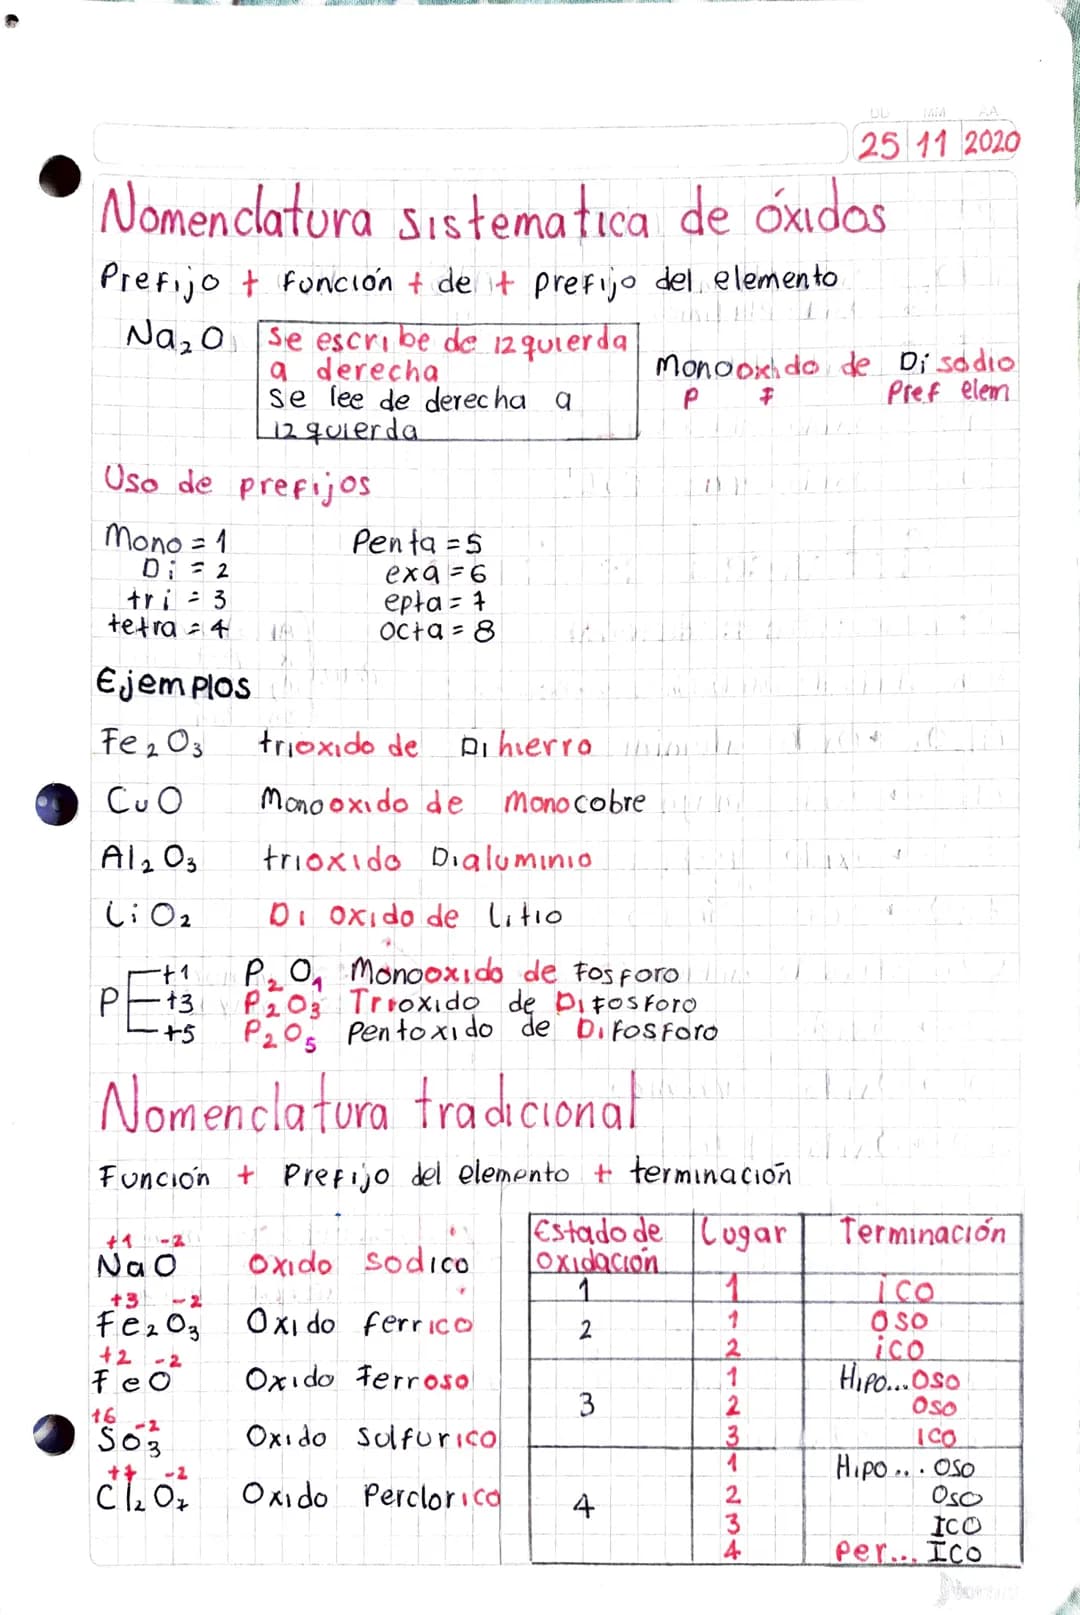 DD MM AA
25 11 2020
Nomenclatura sistematica de óxidos
Prefijo + función + de + prefijo del elemento
Na₂O
se escribe de izquierda
a derecha
se lee de derecha a
izquierda
Monooxido de Disodio
P F Pref elem
Uso de prefijos
Mono = 1 Penta = 5
Di = 2 exa = 6
tri = 3 epta = 7
tetra = 4 octa = 8
Ejemplos
Fe₂O₃ trioxido de Dihierro
CuO Monooxido de monocobre
Al₂O₃ trioxido Dialuminio
LiO₂ Di oxido de litio
P +1 P₂O₁ Monooxido de fosforo
+3 P₂O₃ Trioxido de Difosforo
+5 P₂O₅ pentoxido de Difosforo
Nomenclatura tradicional
Función + Prefijo del elemento + terminación
+1 -2
NaO oxido sodico
+3 -2
Fe₂O₃ Oxido ferrico
+2 -2
FeO Oxido ferroso
+6 -2
SO₃ Oxido Sulfurico
+7 -2
Cl₂O₇ Oxido Perclorico
Estado de oxidación Lugar Terminación
1 1 ico
2 1 oso
2 ico
3 1 Hipo...oso
2 oso
3 ICO
4 1 Hipo... oso
2 Oso
3 ICO
4 Per... ICO